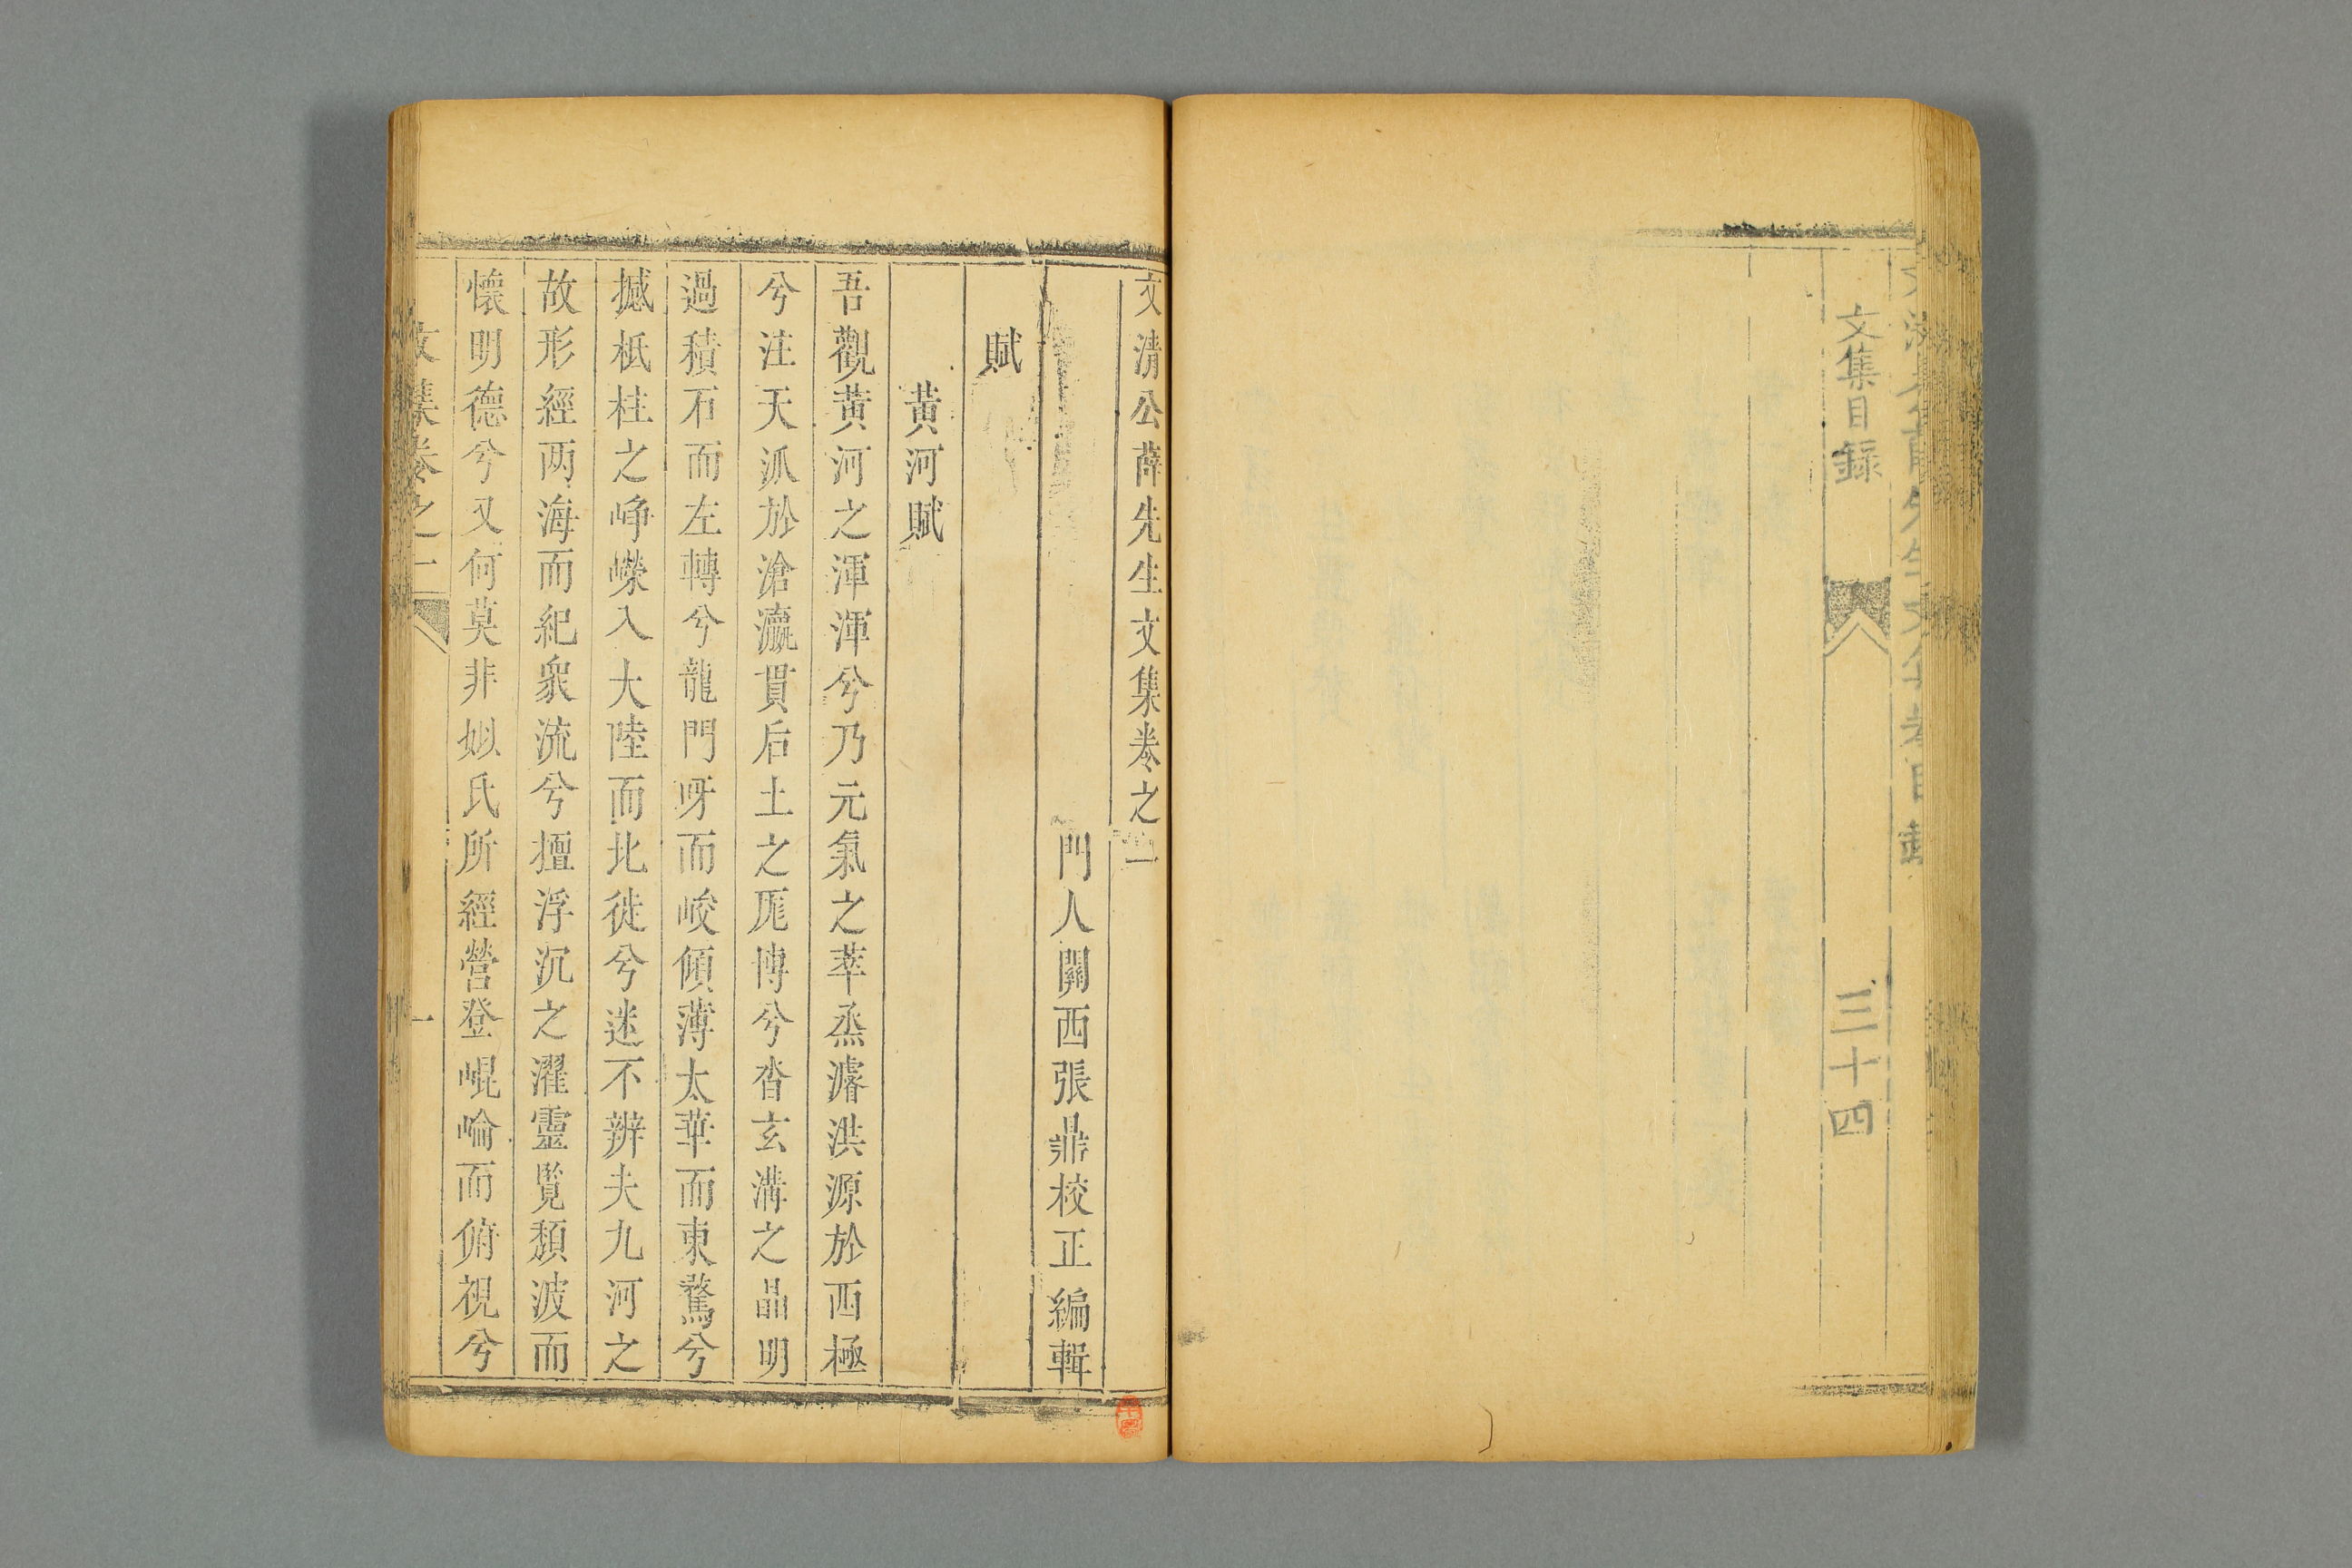 文集目錄
三十四
文清公薛先生文集卷之一
門人關西張鼎校正編輯
賦
黃河賦
吾觀黃河之渾渾兮乃元氣之萃烝濬洪源於西極
兮注天派於滄瀛貫后土之厖博兮沓玄溝之晶明
過積石而左轉兮龍門呀而峻傾薄太華而東騖兮
撼柢柱之崢嶸入大陸而北徙兮迷不辨夫九河之
故形經两海而紀衆流兮擅浮沉之濯靈覧頹波而
懷明德兮又何莫非姒氏所經營登崐崘而俯視兮
文集卷之一
一